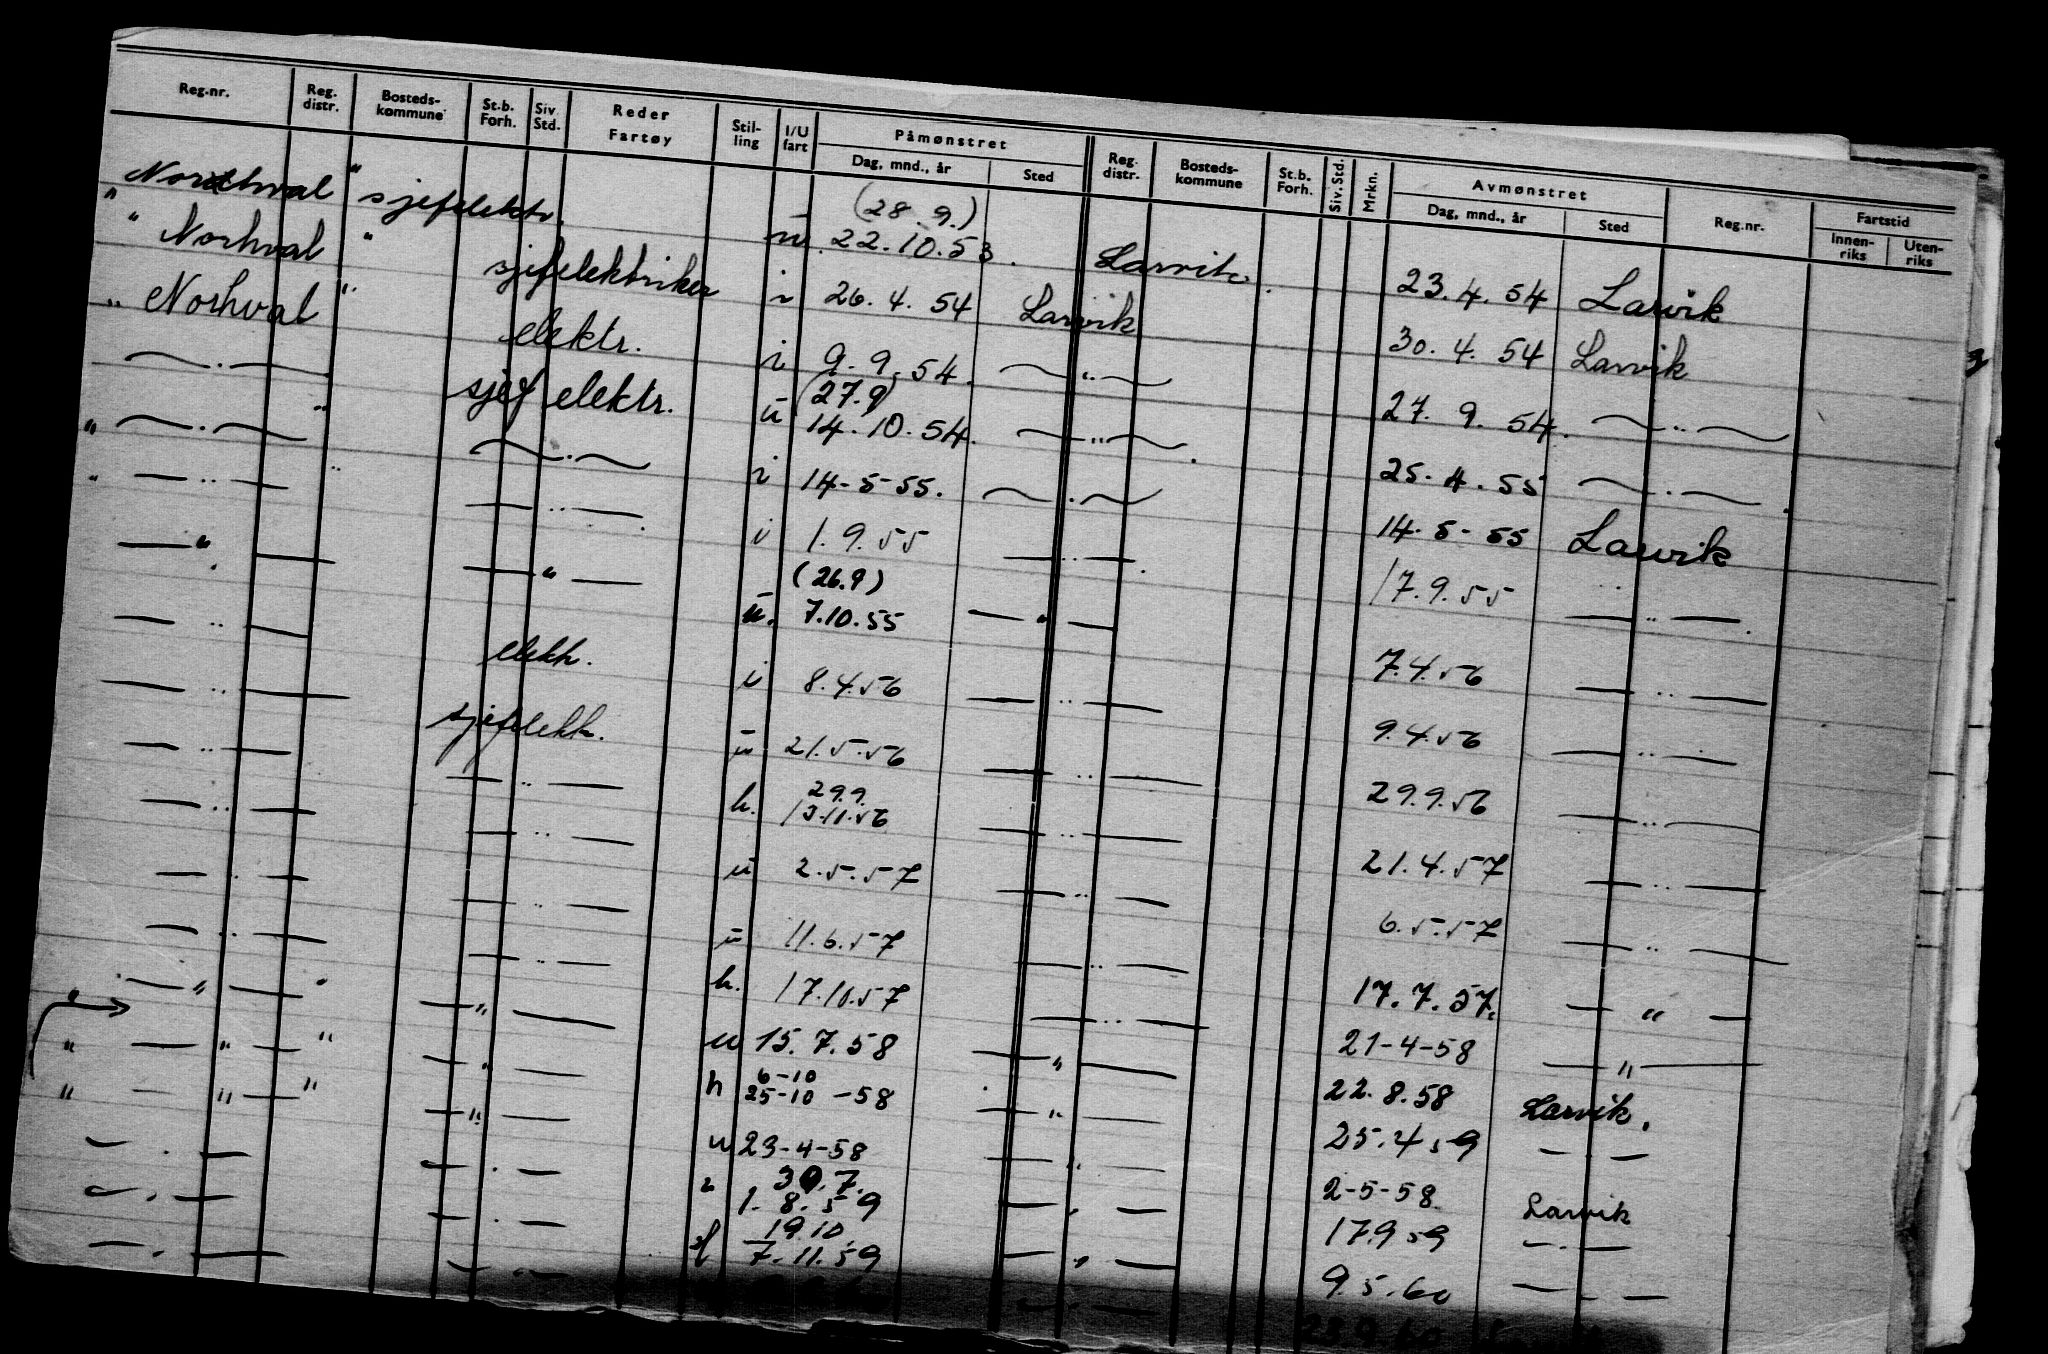 Reg.nr. Reg. distr. Bosteds-kommune St.b. Forh. Siv. Std. Reder Fartøy Stil-ling I/U fart Påmønstret Dag, mnd., år Sted Reg. distr. Bosteds-kommune St.b. Forh. Siv. Std. Mrkn. Avmønstret Dag, mnd., år Sted Reg.nr. Fartstid Innen-riks Uten-riks
" Northval " sjefelektr. u (28.9.) 22.10.53. Larvik. 23.4.54 Larvik
" Norhval " sjefelektriker i 26.4.54 Larvik 30.4.54 Larvik
" Norhval " elektr. i 9.9.54. — " — 27.9.54. — " —
— . — " sjefelektr. u (27.9) 14.10.54. — " — . 25.4.55 — . — .
" — . — " — . — i 14-5-55. — . — 14.5-55 Larvik
" — " — — " — . i 1.9.55 — " — . 17.9.55 — " — .
— " — — " — u. (26.9) 7.10.55 — " — 7.4.56 — " —
— " — elektr. i 8.4.56 — " — 9.4.56 — " —
— " — sjefelektr. u 21.5.56 — " — 29.9.56 — " —
— " — — " — h. 29.9. 13.11.56 — " — 21.4.57 — " —
— " — — " — u 2.5.57 — " — 6.5.57 — " —
— " — — " — u 11.6.57 — " — 17.7.57. — " —
— " — — " — h. 17.10.57 — " — 21-4-58 — " —
" — " — " — " — u 15.7.58 — " — 22.8.58 Larvik.
" — " — " — " — h 6-10 25-10-58 — " — 25.4 59 — " —
" — " — " — " — u 23-4-58 — " — 2-5-58 Larvik
— . — — . — 30.7. 1.8.59 — " — 17.9 59 — . —
— . — — . — 19.10. 7.11.59 — " — 9.5.60 — . —
— . — — " — — . — 23 9 60